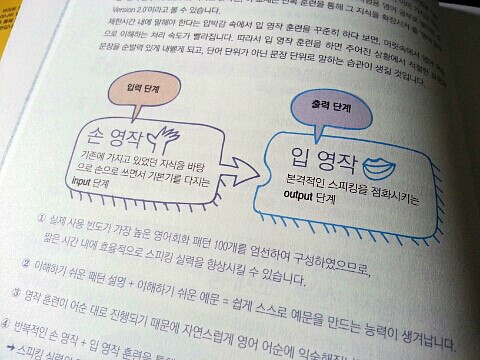 통해 그 지식을 확장시켜
Version 2.0'이라고 볼 수 있습니다.
제한시간 내에 말해야 한다는 압박감 속에서 입 영작 훈련을 꾸준히 하다 보면, 머릿속에서
으로 이해하는 처리 속도가 빨라집니다. 따라서 입 영작 훈련을 하면 주어진 상황에서 적절한
문장을 순발력 있게 내뱉게 되고, 단어 단위가 아닌 문장 단위로 말하는 습관이 생길 것입니다.
입력 단계
출력 단계
손 영작
기존에 가지고 있었던 지식을 바탕
으로 손으로 쓰면서 기본기를 다지는
input 단계
입 영작
본격적인 스피킹을 점화시키는
output 단계
① 실제 사용 빈도가 가장 높은 영어회화 패턴 100개를 엄선하여 구성하였으므로,
짧은 시간 내에 효율적으로 스피킹 실력을 향상시킬 수 있습니다.
② 이해하기 쉬운 패턴 설명 + 이해하기 쉬운 예문 = 쉽게 스스로 예문을 만드는 능력이 생겨납니다.
③ 영작 훈련이 어순 대로 진행되기 때문에 자연스럽게 영어 어순에
④ 반복적인 손 영작 + 입 영작 훈련을
→ 스피킹 실력